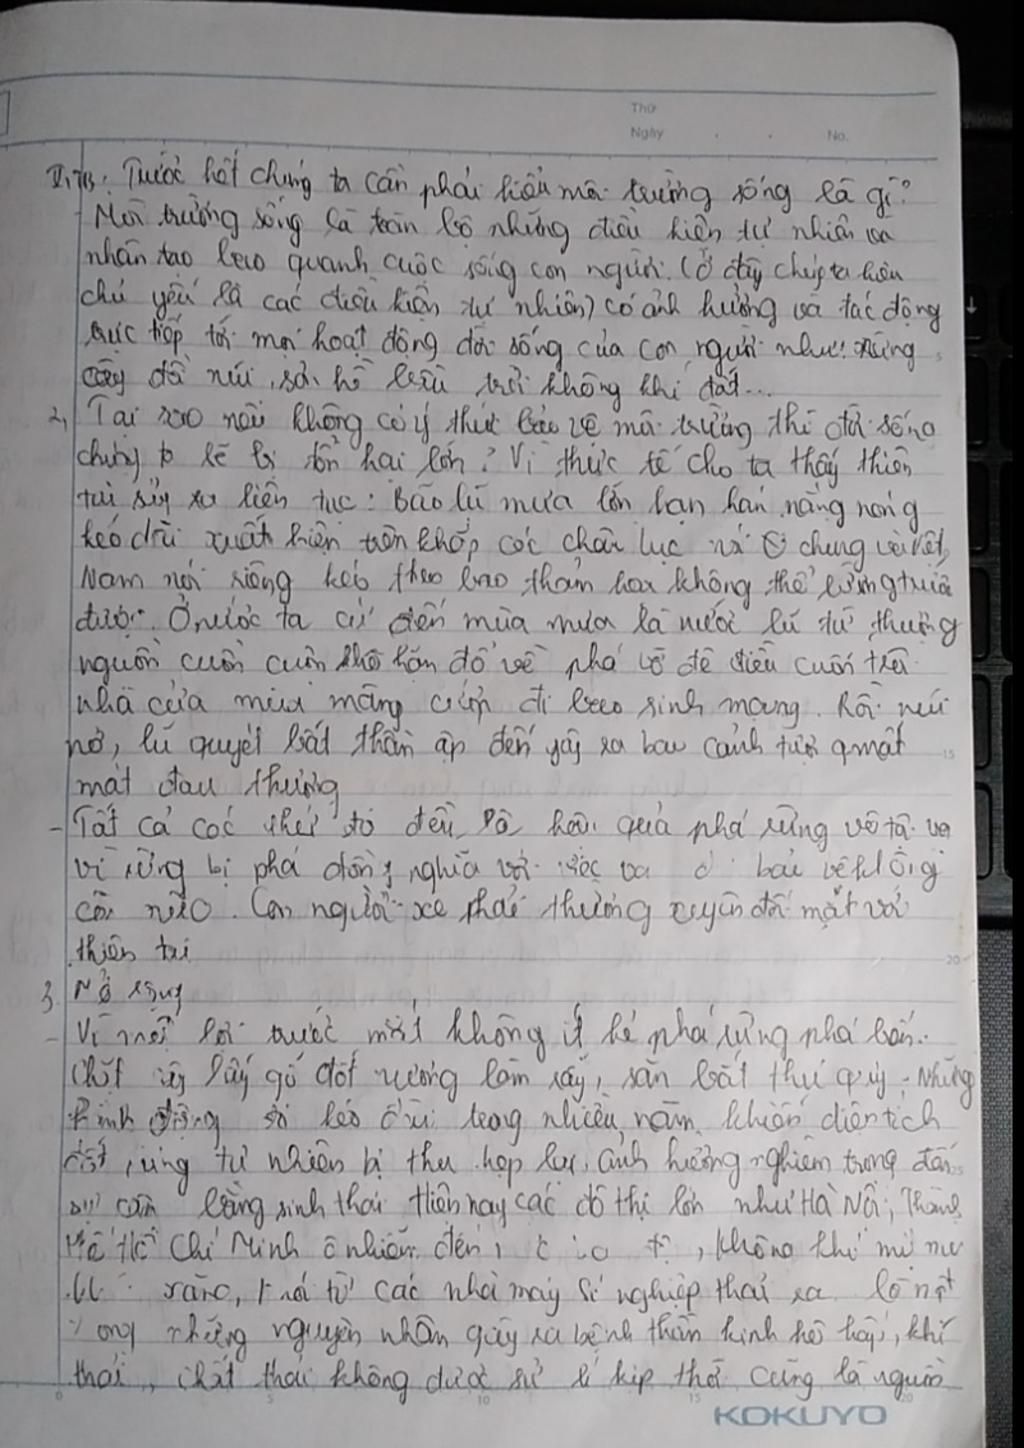 Thứ
Ngày . . No.
II, TB: Trước hết chúng ta cần phải hiểu môi trường sống là gì?
- Môi trường sống là toàn bộ những điều kiện tự nhiên và
nhân tạo bao quanh cuộc sống con người. (Ở đây chúng ta hiểu
chủ yếu là các điều kiện tự nhiên) có ảnh hưởng và tác động
trực tiếp tới mọi hoạt động đời sống của con người như: rừng
cây đồi núi, sôn hồ bầu trời không khí đất...
2, Tại sao nếu không có ý thức bảo vệ môi trường thì đời sống
chúng ta sẽ bị tổn hại lớn? Vì thực tế cho ta thấy thiên
tai xảy ra liên tục: Bão lũ mưa lớn hạn hán nắng nóng
kéo dài xuất hiện trên khắp các châu lục nói chung và Việt
Nam nói riêng kéo theo bao thảm hoạ không thể lường trước
được. Ở nước ta cứ đến mùa mưa là nước lũ từ thượng
nguồn cuồn cuộn đổ về phá vỡ đê điều cuốn trôi
nhà cửa mùa màng cướp đi bao sinh mạng. Rồi núi
nở, lũ quyét bất thần ập đến gây ra bao cảnh tượng mất
mát đau thương
- Tất cả các thứ đó đều là hậu quả phá rừng vô tội vạ
vì rừng bị phá đồng nghĩa với việc bảo vệ
còn nào. Con người sẽ phải thường xuyên đối mặt với
thiên tai
3. Mở rộng
- Vì mối lợi trước mắt không ít kẻ phá rừng phá bán..
Chặt cây lấy gỗ đốt nương làm rẫy, săn bắt thú quý. Những
hành động đó kéo dài trong nhiều năm khiến diện tích
đất rừng tự nhiên bị thu hẹp lại, ảnh hưởng nghiêm trọng đến
sự cân bằng sinh thái Hiện nay các đô thị lớn như Hà Nội, Thành
Phố Hồ Chí Minh ô nhiễm đến, không khí mù
xăng, khói từ các nhà máy sí nghiệp thải ra là một
trong những nguyên nhân gây ra bệnh thần kinh hô hấp, khí
thải, chất thải không được sử lí kịp thời cũng là nguồn
KOKUYO